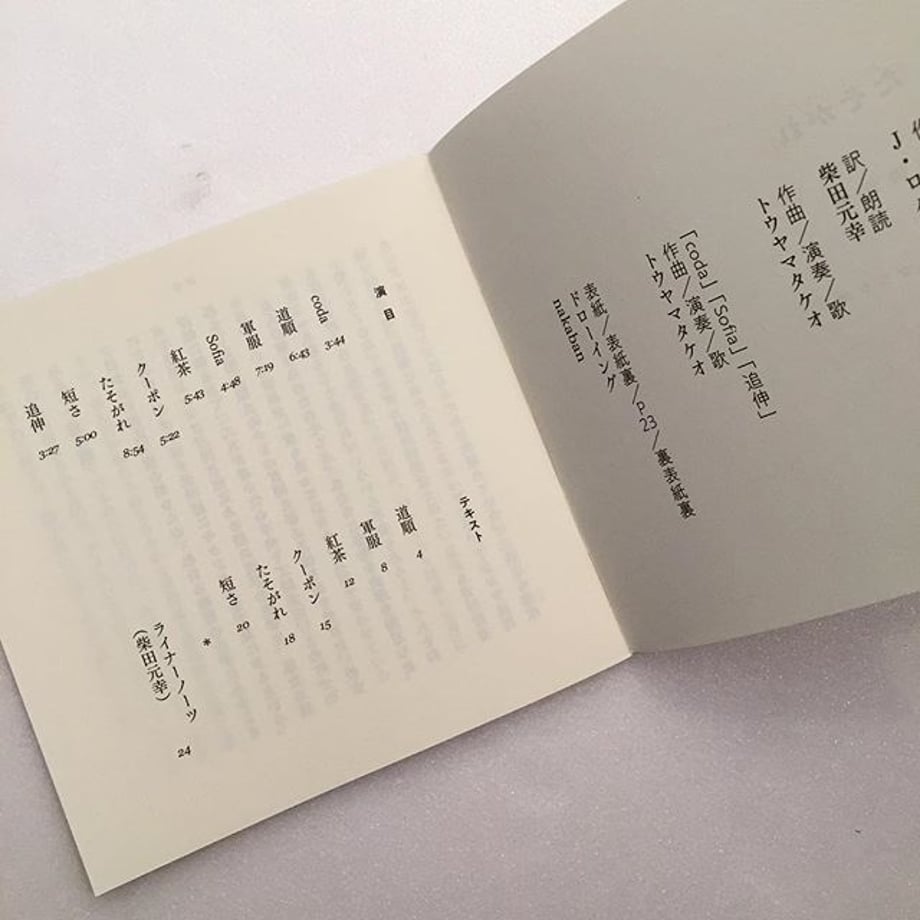 訳／朗読
柴田元幸
作曲／演奏／歌
トウヤマタケオ
「coda」「Sofia」「追伸」
作曲／演奏／歌
トウヤマタケオ
表紙／表紙裏／p23／裏表紙裏
ドローイング
nakaban
演目
coda 3:44
道順 6:43
軍服 7:19
Sofia 4:48
紅茶 5:43
クーポン 5:22
たそがれ 8:54
短さ 5:00
追伸 3:27
テキスト
道順 4
軍服 8
紅茶 12
クーポン 15
たそがれ 18
短さ 20
*
ライナーノーツ 24
（柴田元幸）